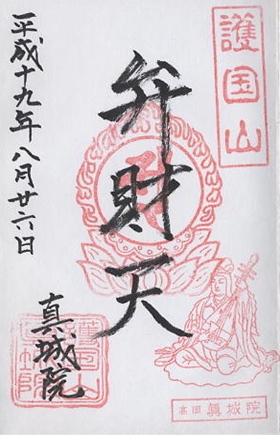 護国山
弁財天
平成十九年八月廿六日
真城院
高田 眞城院